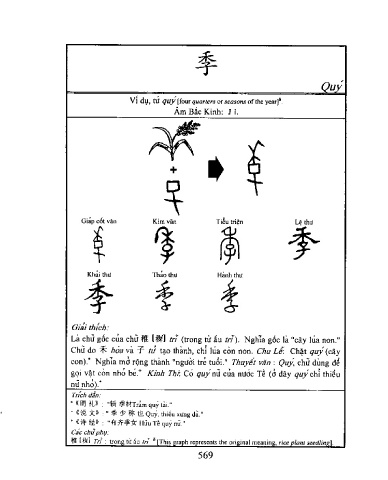 季
Quý
Ví dụ, tứ quý [four quarters or seasons of the year]ª.
Âm Bắc Kinh: Jì.
+
Giáp cốt văn Kim văn Tiểu triện Lệ thư
Khải thư Thảo thư Hành thư
季 季 季
Giải thích:
Là chữ gốc của chữ 稚 [稺] trĩ (trong từ ấu trĩ). Nghĩa gốc là "cây lúa non."
Chữ do 禾 hòa và 子 tử tạo thành, chỉ lúa còn non. Chu Lễ: Chặt quý (cây
con)." Nghĩa mở rộng thành "người trẻ tuổi." Thuyết văn: Quý, chữ dùng để
gọi vật còn nhỏ bé." Kinh Thi: Có quý nữ của nước Tề (ở đây quý chỉ thiếu
nữ nhỏ)."
Trích dẫn:
"《周礼》: "斩季材 Trảm quý tài."
"《说文》: "季少称也 Quý, thiếu xưng dã."
"《诗经》: "有齐季女 Hữu Tề quý nữ."
Các chú phụ:
稚 [稺] Trĩ: trong từ ấu trĩ [This graph represents the original meaning, rice plant seedling].
569